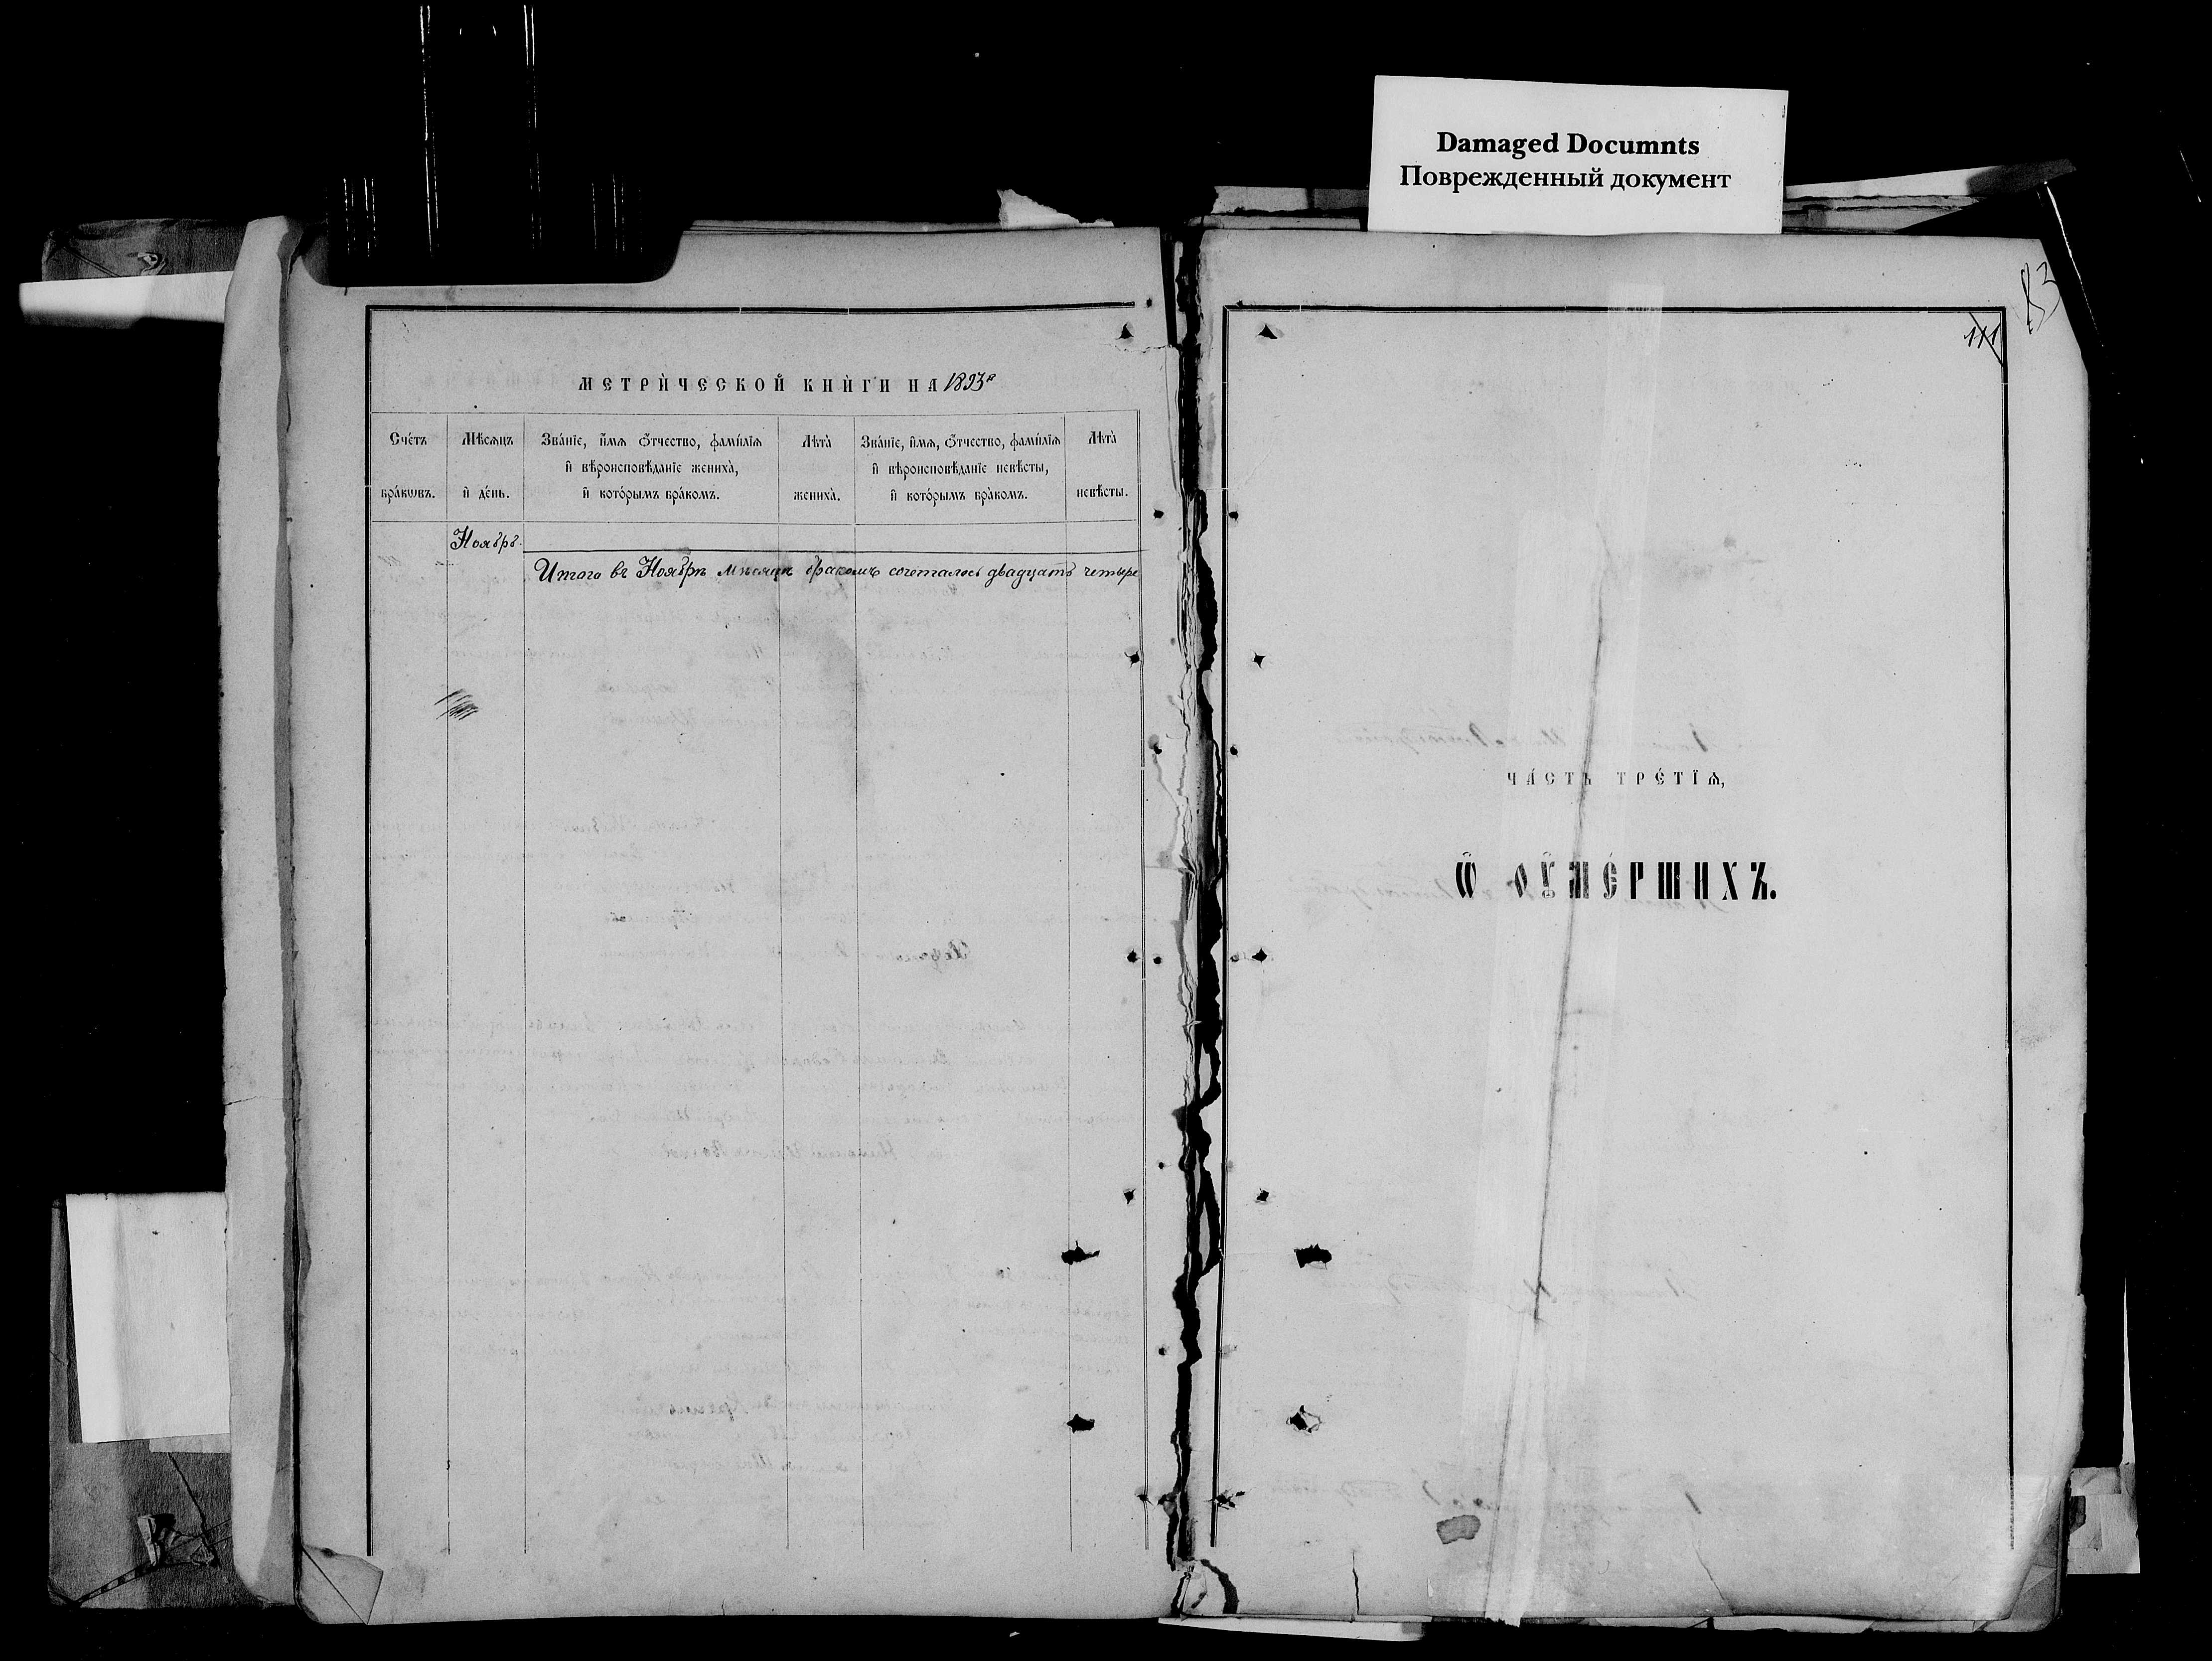 Damaged Documnts
Поврежденный документ
83
111
МЕТРИ́ЧЕСКОЙ КНИ́ГИ НА 1893 г
Сче́тъ бра́кѡвъ.
Мѣ́сѧцъ и҆ де́нь.
Зва́нїе, и҆́мѧ ѻ҆́тчество, фамѝлїѧ
и҆ вѣроисповѣ́данїе женихà,
и҆ кото́рымъ бра́комъ.
Лѣ̀та женихà.
Зва́нїе, и҆́мѧ, ѻ҆́тчество, фамѝлїѧ
и҆ вѣроисповѣ́данїе невѣ́сты,
и҆ кото́рымъ бра́комъ.
Лѣ̀та невѣ́сты.
Ноябрь.
Итого въ Ноябрѣ мѣсяцѣ бракомъ сочеталось двадцать четыре
ЧА́СТЬ ТРЕ́ТЇѦ,
Ѽ ОУ҆МЕ́РШИХЪ.